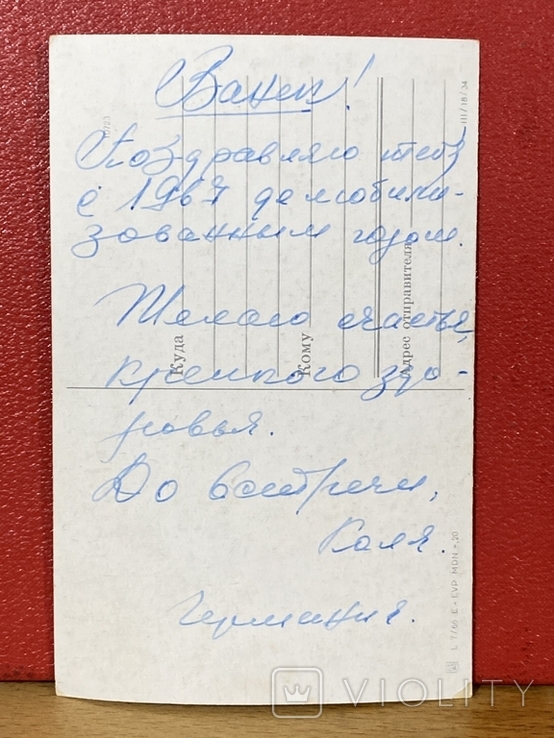 Ванек!
Поздравляю тебя
с 1967 демобили-
зованным годом.
Желаю счастья,
крепкого здо-
ровья.
До встречи,
Коля.
Германия.
Куда
Кому
Адрес отправителя
III/18/34
L 7/66 E • EVP MDN •,20
VIOLITY